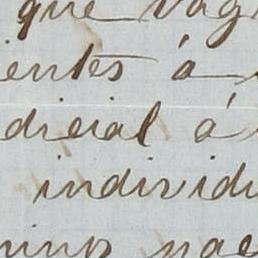 que vag
ientes á
dicial á
individu